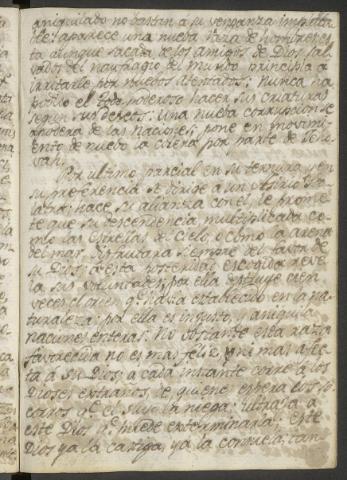 aniquilado no bastan a su venganza implaca
ble: aparece una nueva raza de hombres; es
ta aunque sacada de los amigos de Dios sal
vados del naufragio del mundo principia a
irritarle por nuebos atentados: Nunca ha
podido el todo poderoso hacer sus criaturas
segun sus deseos: una nueva corrupcion se
apodera de las Naciones; pone en movimi
ento de nuebo la colera por parte de Jeho
vah.
Por ultimo, parcial en su ternura, y en
su preferencia se dirige a un Asirio Ydo
latra; hace su alianza con el, le prome
te que su descendencia multiplicada co
mo las Estrellas del cielo, o como la arena
del mar, disfrutara siempre del favor de
su Dios; a esta posteridad escogida reve
la sus voluntades; por ella destruye cien
veces el orden q.e habia establecido en la na
turaleza; por ella es injusto, y aniquila
naciones enteras. No obstante esta razza
favorecida no es mas feliz, y ni mas afec
ta a su Dios; a cada instante corre a los
Dioses extraños, de quienes espera los so
corros q.e el suyo la niega; ultraja a
este Dios q.e puede exterminarla; este
Dios ya la castiga, ya la consuela, tan